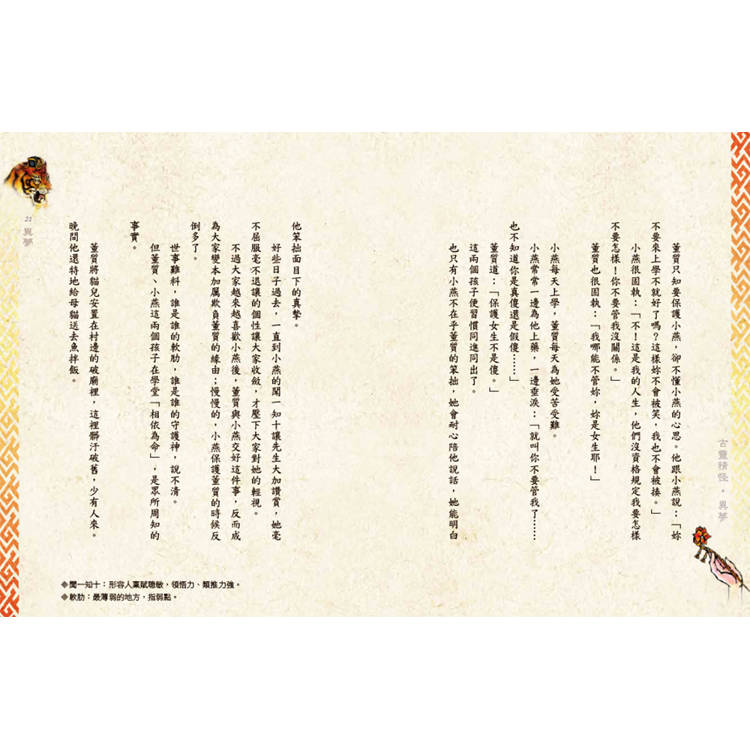 董質只知要保護小燕，卻不懂小燕的心思。他跟小燕說：「妳
不要來上學不就好了嗎？這樣妳不會被笑，我也不會被揍。」
小燕很固執：「不！這是我的人生，他們沒資格規定我要怎樣
不要怎樣！你不要管我沒關係。」
董質也很固執：「我哪能不管妳，妳是女生耶！」
小燕每天上學，董質每天為她受苦受難。
小燕常常一邊為他上藥，一邊垂淚：「就叫你不要管我了……
也不知道你是真傻還是假傻……」
董質道：「保護女生不是傻。」
這兩個孩子便習慣同進同出了。
也只有小燕不在乎董質的笨拙，她會耐心陪他說話，她能明白
古靈精怪・異夢
他笨拙面目下的真摯。
好些日子過去，一直到小燕的聞一知十讓先生大加讚賞，她毫
不屈服毫不退讓的個性讓大家收斂，才壓下大家對她的輕視。
不過大家越來越喜歡小燕後，董質與小燕交好這件事，反而成
為大家變本加厲欺負董質的緣由；慢慢的，小燕保護董質的時候反
倒多了。
世事難料，誰是誰的軟肋，誰是誰的守護神，說不清。
但董質、小燕這兩個孩子在學堂「相依為命」，是眾所周知的
事實。
董質將貓兒安置在村邊的破廟裡，這裡髒汙破舊，少有人來。
晚間他還特地給母貓送去魚拌飯。
◆聞一知十：形容人稟賦聰敏，領悟力、類推力強。
◆軟肋：最薄弱的地方，指弱點。
21 異夢